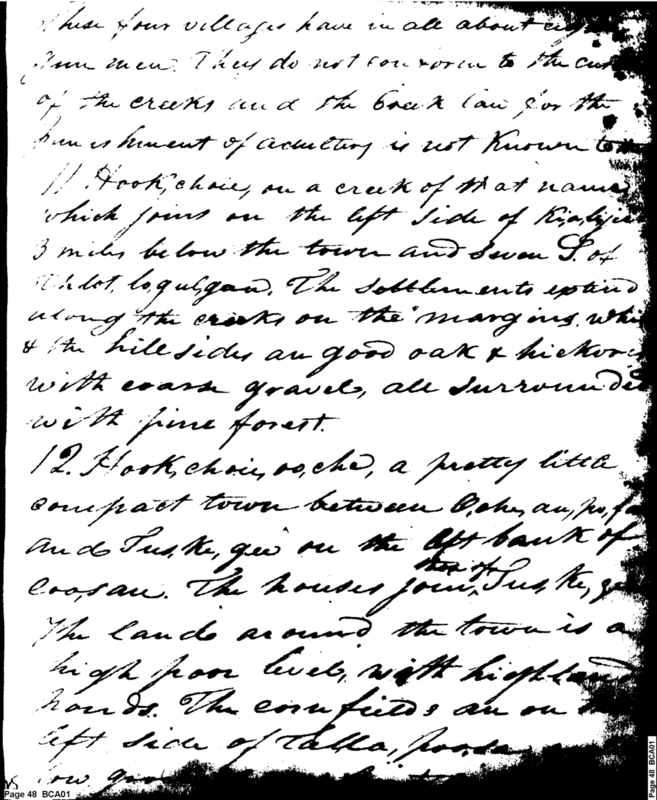 These four villages have in all about eigh
gun men. They do not conform to the cus
of the creeks and the Creek law for the
punishment of adultery is not known to
11 Hook,choie, on a creek of that name
which joins on the left side of Kia,lijee
3 miles below the town and seven S. of
Thlot,lo,gul,gau. The settlements extend
along the creeks on the margins, whi
& the hill sides are good oak & hickory
with coarse gravel, all surrounded
with pine forest.
12. Hook,choie,oo,che, a pretty little
compact town between O,che,au,po,fa
and Tus,ke,gee on the left bank of
Coosau. The houses join those of Tus,ke,gee
The lands around the town is a
high poor level, with highland
ponds. The corn fields are on the
left side of Talla,poosa
low
Page 48 BCA01
Page 48 BCA01